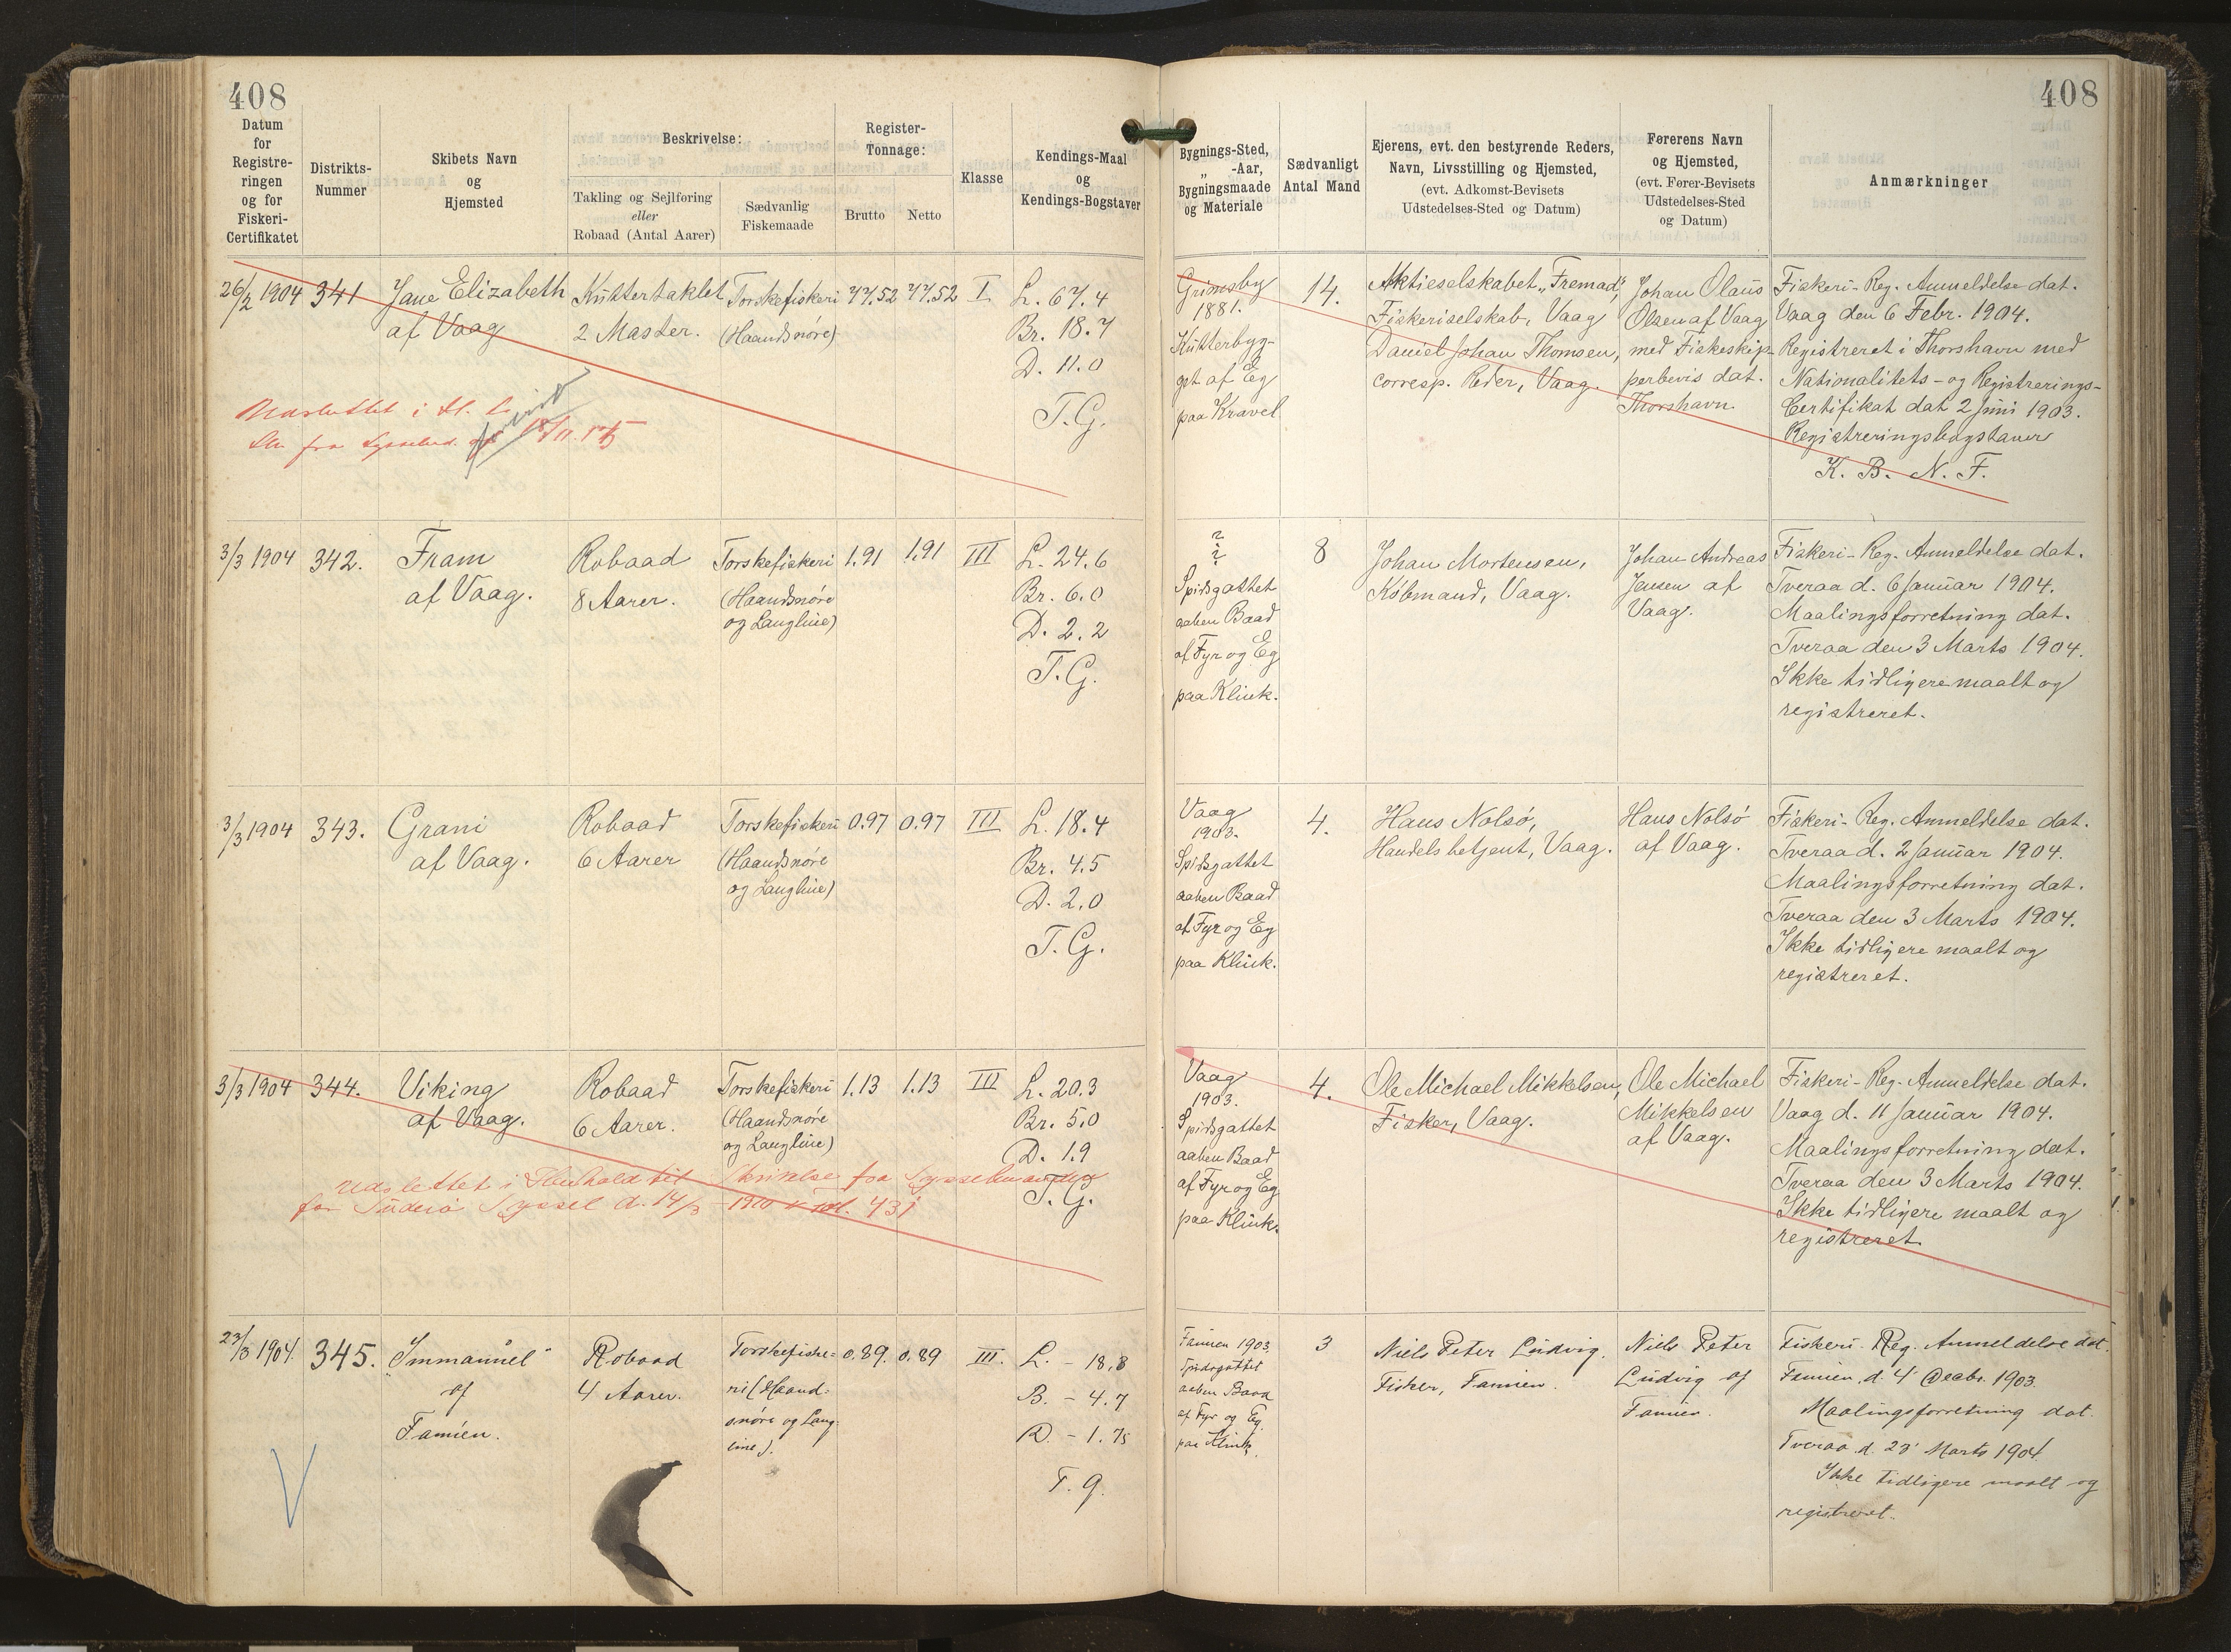 408
408
Datum
for
Registre-
ringen
og for
Fiskeri-
Certifikatet
Distrikts-
Nummer
Skibets Navn
og
Hjemsted
Beskrivelse:
Takling og Sejlføring
eller
Robaad (Antal Aarer)
Sædvanlig
Fiskemaade
Register-
Tonnage:
Brutto
Netto
Klasse
Kendings-Maal
og
Kendings-Bogstaver
Bygnings-Sted,
„ -Aar,
Bygningsmaade
og Materiale
Sædvanligt
Antal Mand
Ejerens, evt. den bestyrende Reders,
Navn, Livsstilling og Hjemsted,
(evt. Adkomst-Bevisets
Udstedelses-Sted og Datum)
Førerens Navn
og Hjemsted,
(evt. Fører-Bevisets
Udstedelses-Sted
og Datum)
Anmærkninger
26/2 1904
341
Jane Elizabeth
af Vaag
Kuttertaklet
2 Master.
Torskefiskeri
(Haandsnøre)
77.52
77.52
I
L. 67.4
Br. 18.7
D. 11.0
T.G.
Grimsby
1881.
Kutterbyg-
get af Eg
paa Kravel
14.
Aktieselskabet „Fremad“,
Fiskeriselskab, Vaag
Daniel Johan Thomsen,
corresp. Reder, Vaag.
Johan Olaus
Olsen af Vaag
med Fiskeskip-
perbevis dat.
Thorshavn.
Fiskeri-Reg. Anmeldelse dat.
Vaag den 6 Febr. 1904.
Registreret i Thorshavn med
Nationalitets- og Registrerings-
Certifikat dat 2 Juni 1903.
Registreringsbogstaver
K. B. N. F.
3/3 1904
342.
Fram
af Vaag.
Robaad
8 Aarer.
Torskefiskeri
(Haandsnøre
og Langline)
1.91
1.91
III
L. 24.6
Br. 6.0
D. 2.2
T.G.
?
?
Spidsgattet
aaben Baad
af Fyr og Eg
paa Klink.
8
Johan Mortensen,
Købmand, Vaag.
Johan Andreas
Jensen af
Vaag.
Fiskeri-Reg. Anmeldelse dat.
Tveraa d. 6 Januar 1904.
Maalingsforretning dat.
Tveraa den 3 Marts 1904.
Ikke tidligere maalt og
registreret.
3/3 1904
343.
Grani
af Vaag.
Robaad
6 Aarer
Torskefiskeri
(Haandsnøre
og Langline)
0.97
0.97
III
L. 18.4
Br. 4.5
D. 2.0
T.G.
Vaag
1903.
Spidsgattet
aaben Baad
af Fyr og Eg
paa Klink.
4.
Hans Nolsö,
Handelsbetjent, Vaag.
Hans Nolsö
af Vaag.
Fiskeri-Reg. Anmeldelse dat.
Tveraa d. 2 Januar 1904.
Maalingsforretning dat.
Tveraa den 3 Marts 1904.
Ikke tidligere maalt og
registreret.
3/3 1904
344.
Viking
af Vaag.
Robaad
6 Aarer.
Torskefiskeri
(Haandsnøre
og Langline)
1.13
1.13
III
L. 20.3
Br. 5.0
D. 1.9
T.G.
Udslettet i Henhold til Skrivelse fra Sysselmanden
for Suderø Syssel d. 14/3 1910
Vaag
1903.
Spidsgattet
aaben Baad
af Fyr og Eg
paa Klink.
4.
Ole Michael Mikkelsen,
Fisker, Vaag.
Ole Michael
Mikkelsen
af Vaag.
Fiskeri-Reg. Anmeldelse dat.
Vaag d. 11 Januar 1904.
Maalingsforretning dat.
Tveraa den 3 Marts 1904.
Ikke tidligere maalt og
registreret.
23/3 1904.
345.
„Immanuel“
af
Famien.
Robaad
4 Aarer.
Torskefiske-
ri (Haand-
snøre og Lang-
line).
0.89.
0.89
III.
L. - 18.8
B. - 4.7
D. - 1.75
T. G.
Famien 1903
Spidsgattet
aaben Baad
af Fyr og Eg.
paa Klink.
3
Niels Peter Ludvig.
Fisker, Famien.
Niels Peter
Ludvig af
Famien.
Fiskeri-Reg. Anmeldelse dat.
Famien, d. 4' Decbr. 1903.
Maalingsforretning dat.
Tveraa d. 23' Marts 1904.
Ikke tidligere maalt og
registreret.